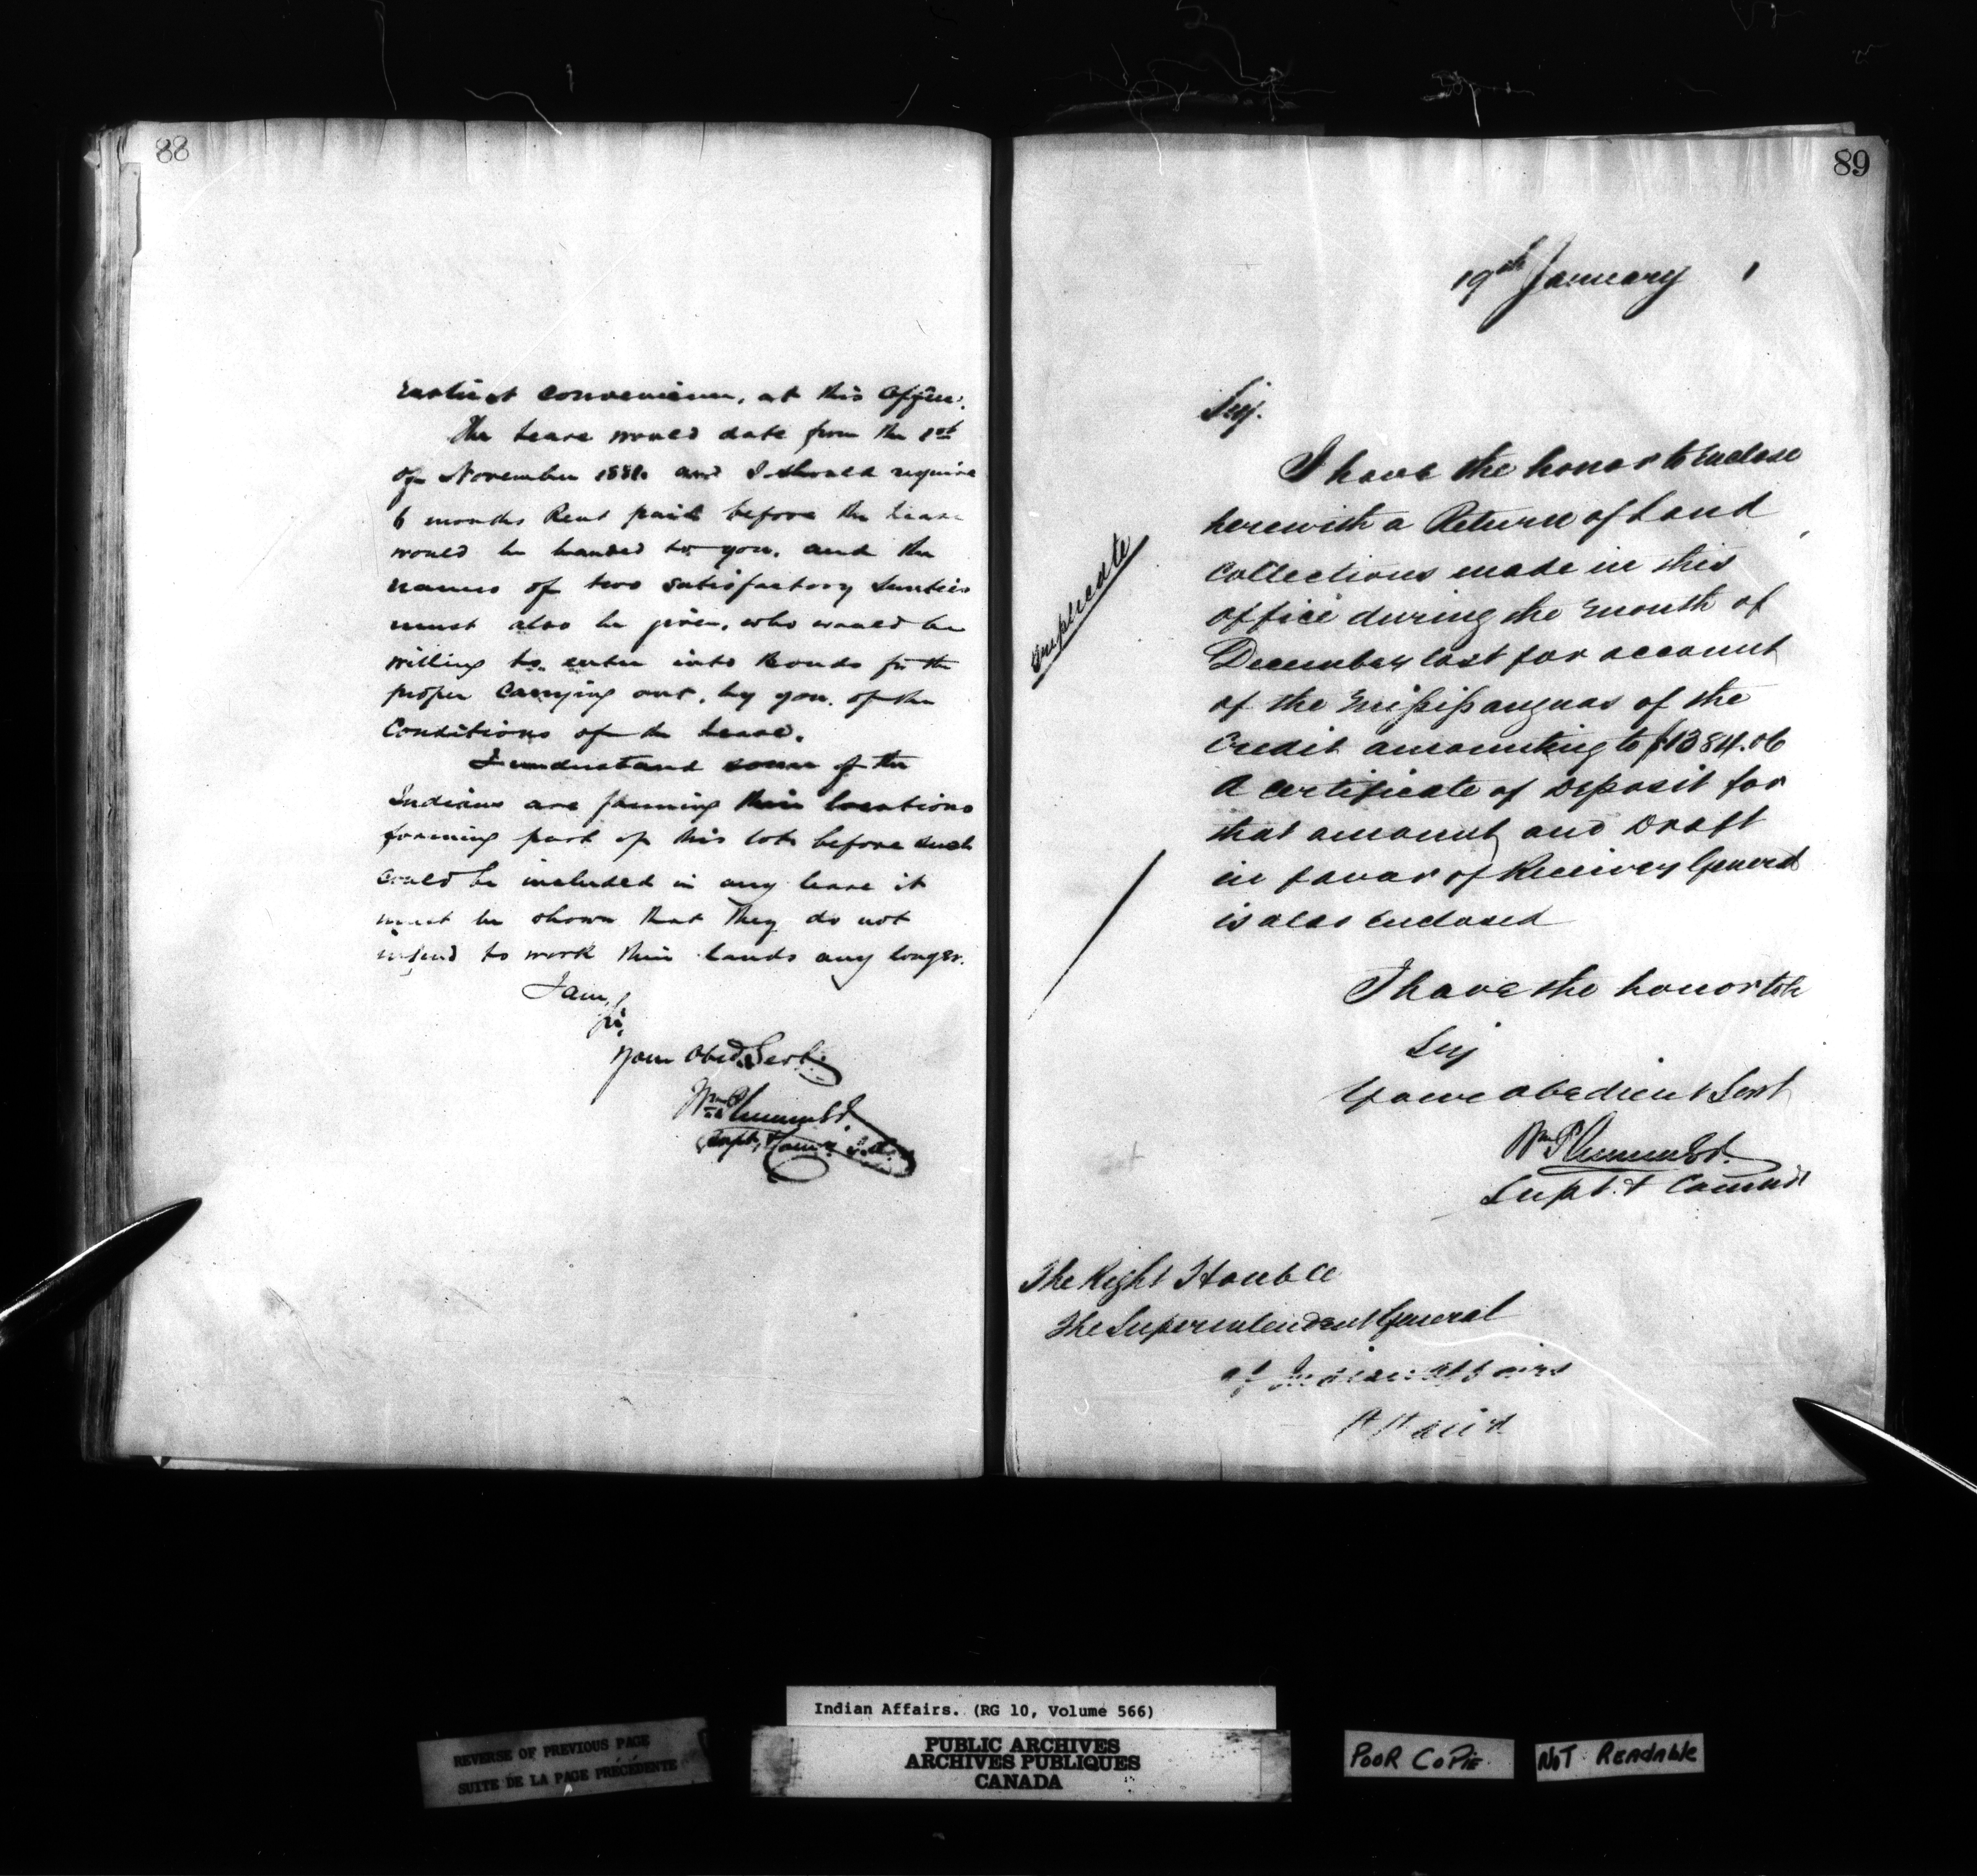 88
Earliest convenience, at this Office.
The Lease would date from the 1st
of November 1880 and I should require
6 months Rent paid before the lease
would be handed to you. and the
names of two satisfactory Sureties
must also be given, who would be
willing to enter into Bonds for the
proper Carrying out, by you, of the
Conditions of the Lease.
I understand some of the
Indians are farming their locations
forming part of this lot. before such
could be included in any lease it
must be shown that they do not
intend to work their lands any longer.
I am,
Sir,
Your Obed. Servt.
Wm Plummer
Supt. & Comr.
89
19th January 1
Sir.
I have the honor to Enclose
herewith a Return of Land
Collections made in this
office during the month of
December last for account
of the Mississaguas of the
Credit amounting to $1384.06
A certificate of Deposit for
that amount and Draft
in favor of Receiver General
is also Enclosed
I have the honor to be
Sir
Your obedient Servt
Wm Plummer
Supt. & Commr
The Right Honble
The Superintendent General
of Indian Affairs
Ottawa
Triplicate
Indian Affairs. (RG 10, Volume 566)
REVERSE OF PREVIOUS PAGE
SUITE DE LA PAGE PRÉCÉDENTE
PUBLIC ARCHIVES
ARCHIVES PUBLIQUES
CANADA
POOR COPIE
NOT READABLE